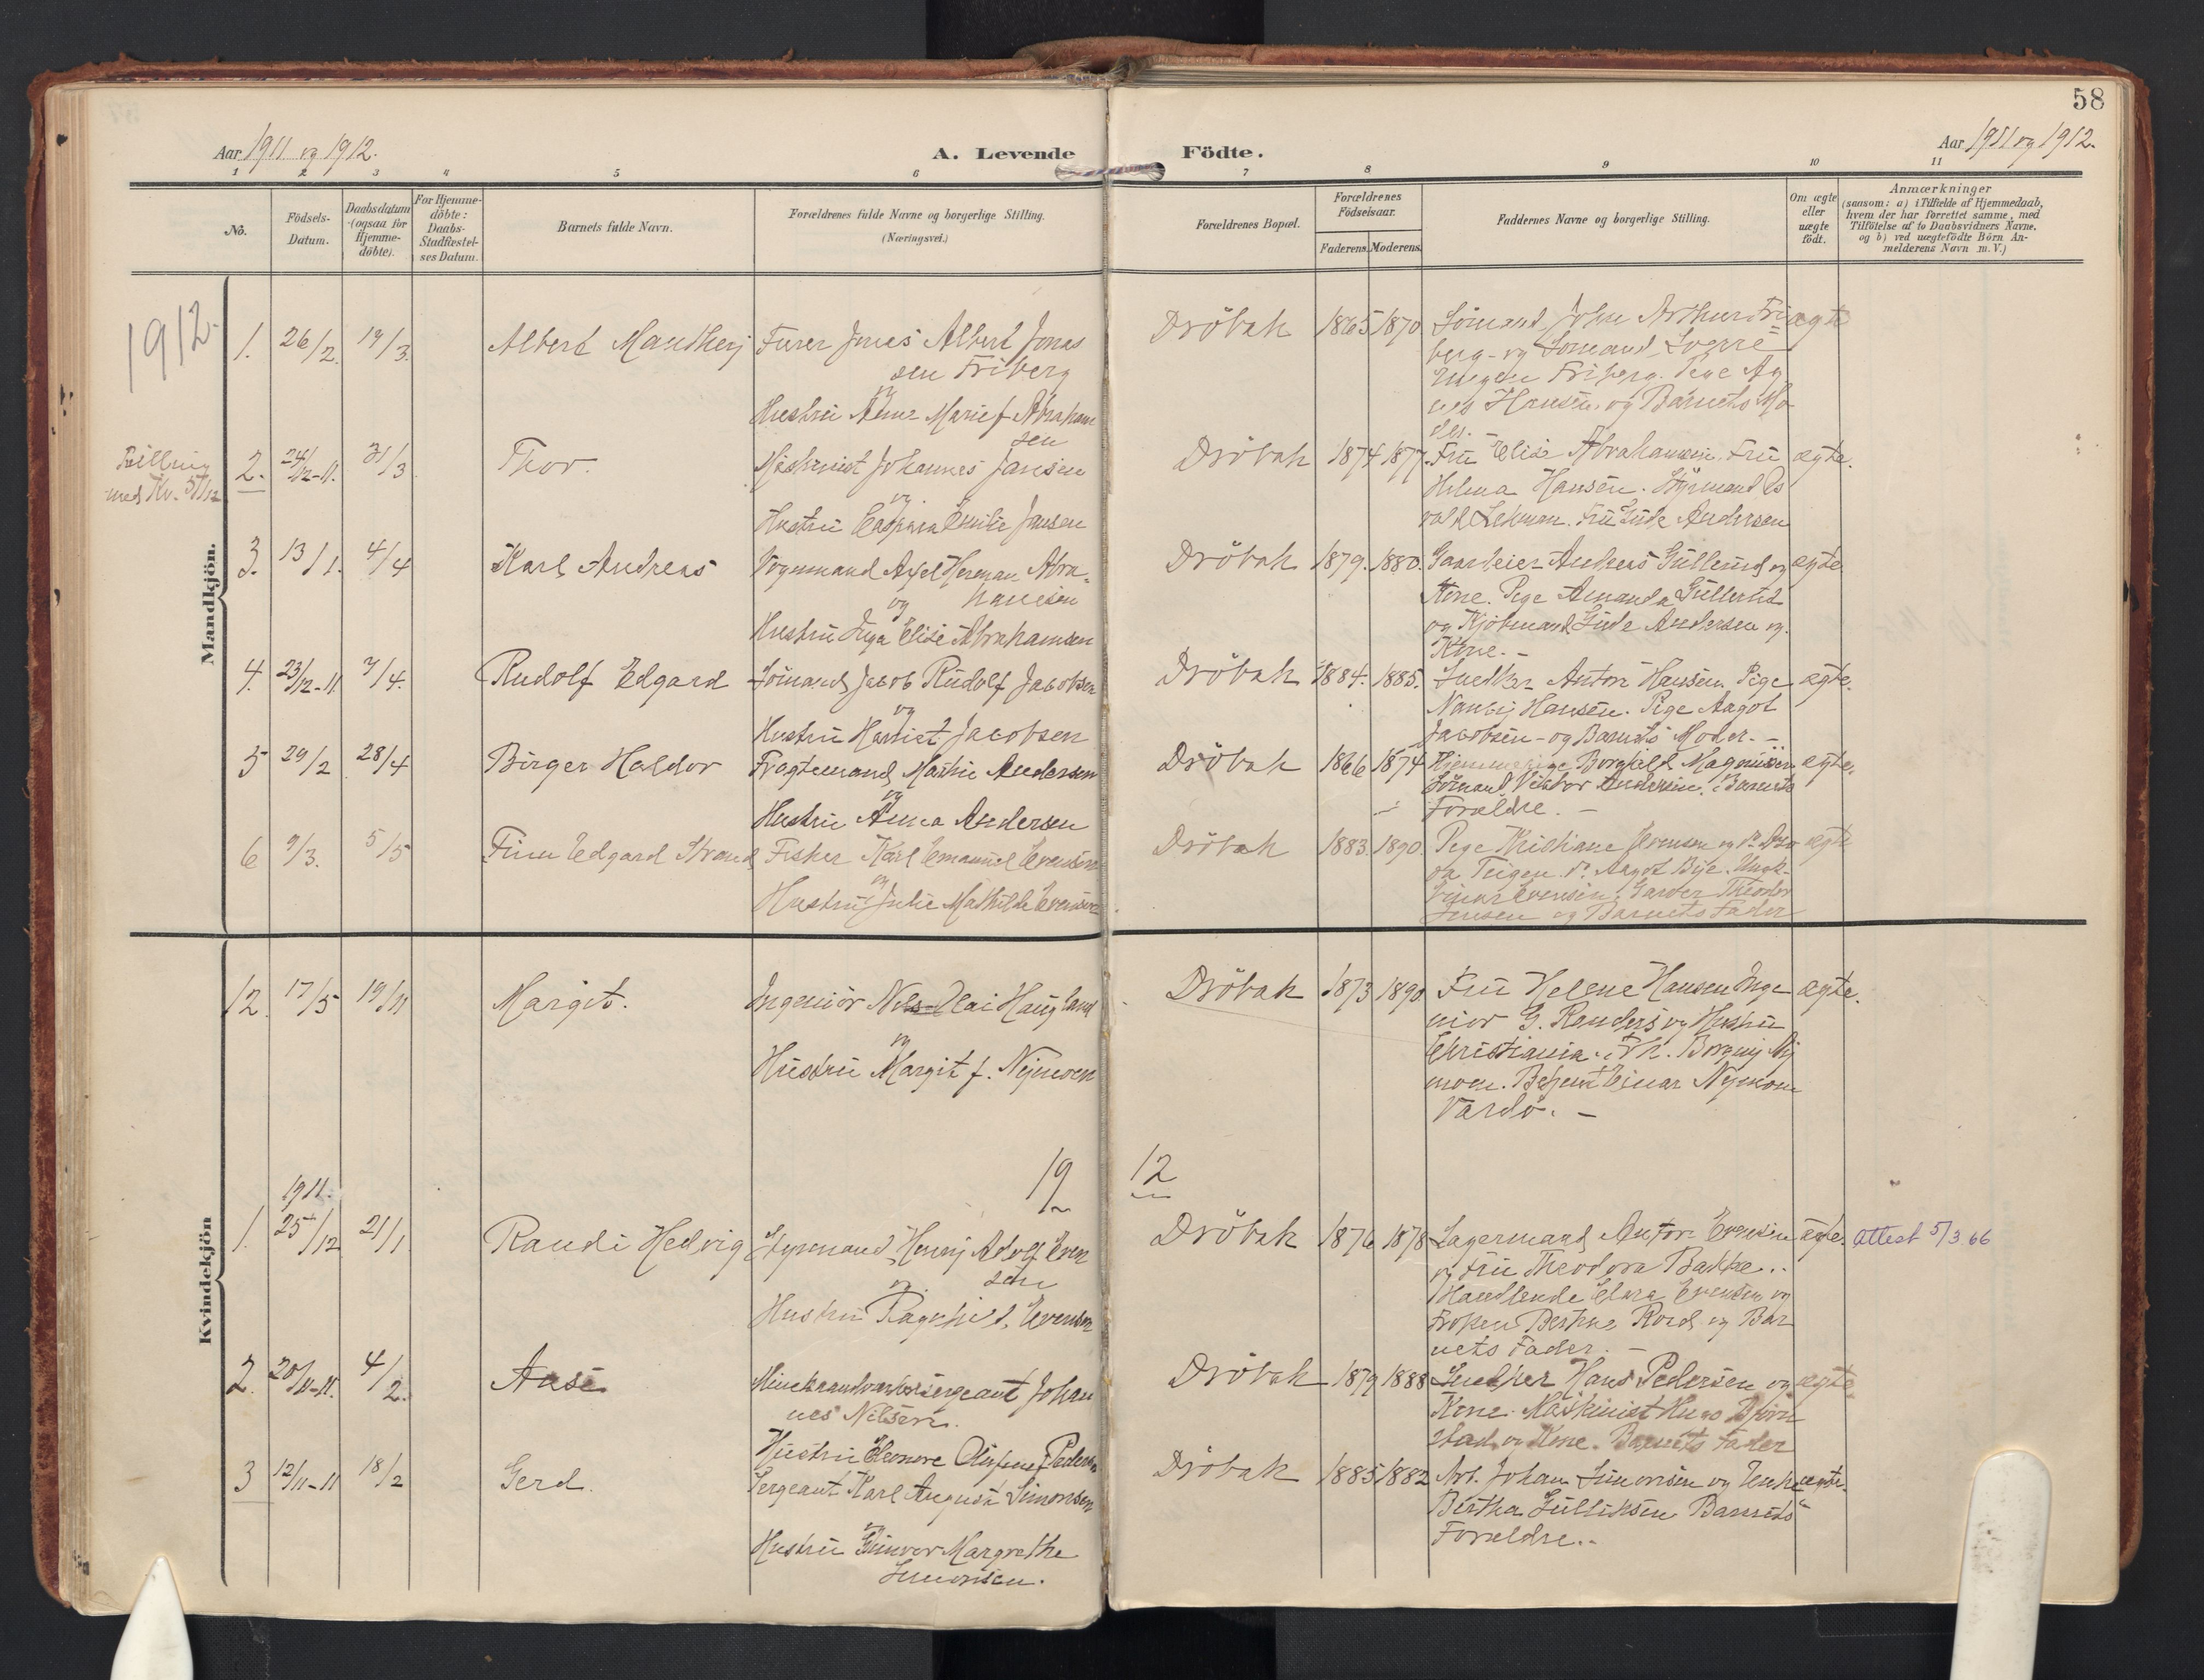 58
Aar 1911 og 1912.
A. Levende Födte.
Aar 1911 og 1912.
1 2 3 4 5 6 7 8 9 10 11
No.
Födsels-Datum.
Daabsdatum (ogsaa for Hjemme-döbte).
For Hjemme-döbte: Daabs-Stadfæstel-ses Datum.
Barnets fulde Navn.
Forældrenes fulde Navne og borgerlige Stilling. (Næringsvei.)
Forældrenes Bopæl.
Forældrenes Födselsaar.
Faderens. Moderens.
Faddernes Navne og borgerlige Stilling.
Om ægte eller uægte födt.
Anmærkninger
(saasom: a) i Tilfælde af Hjemmedaab,
hvem der har forrettet samme, med
Tilföielse af to Daabsvidners Navne.
og b) ved uægtefödte Börn An-
melderens Navn m.V.)
1912.
Mandkjön.
1. 26/2. 19/3. Albert
Furer Jonas Albert Jonas
sen Friberg
og
Hustru Anna Marie f. Abraham
sen
Dröbak 1865 1870
Sömand John Arthur Fri
berg og Sömand Sverre
Friberg. Pige Ag
nes Hansen og Barnets Mo
der.
ægte
med Kv.
2. 24/12-11. 31/3 Thor.
Maskinist Johannes Jansen
og
Hustru Caspara Emilie Jansen
Dröbak 1874 1877.
Fru Elise Abrahamsen. Fru
Helma Hansen. Styrmand Os
vald Lehman. Fru Andersen
ægte.
3. 13/1. 4/4 Karl Andreas
Vognmand Axel Herman Abra-
hamsen
og
Hustru Inga Elise Abrahamsen
Dröbak 1879. 1880.
Gaardeier Andreas Gullerud og
Kone. Pige Amanda Gullerud
og Kjöbmand Andersen og
Kone. -
ægte.
4. 23/12-11 7/4. Rudolf Edgard
Sömand Jacob Rudolf Jacobsen
og
Hustru Harriet Jacobsen
Dröbak 1884. 1885.
Snedker Anton Hansen. Pige
Hansen. Pige Aagot
Jacobsen og Barnets Moder. -
ægte.
5 29/2 28/4 Birger Haldor
Fragtemand Martin Andersen
og
Hustru Anna Andersen
Dröbak 1866 1874
Borghild Magnusen
Sömand Viktor Andersen. Barnets
Forældre. -
ægte.
6 9/3. 5/5 Finn Edgard Strand
Fisker Karl Emanuel Evensen
og
Hustru Julie Mathilde Evensen
Dröbak 1883. 1890
Pige Jensen og
Teigen. Aagot Bye. Ungk.
Einar Evensen. Garder Theodor
Jensen og Barnets Fader
ægte
Kvindekjön
12. 17/5 19/11 Margit.
Ingeniör Olai Haugland
og
Hustru Margit f. Nymoen
Dröbak 1873 1890
Fru Helene Hansen. Inge
niör G. Randers og Hustru
Christiania. Frk. Borgny Ny
moen. Einar Nymoen
Vardö. -
ægte.
19 12
1911.
1. 25/12 21/1 Randi Hedvig
Styrmand Henry Adolf Even
sen
og
Hustru Ragnhild Evensen
Dröbak 1876 1878
Lagermand Anton Evensen
og Fru Theodora Bakke.
Handlende Clara Evensen og
Fröken Berthe Roed og Bar
nets Fader. -
ægte.
Attest 5/3 66
2. 20/11-11. 4/2. Aase
Minehaandverkersergeant Johan
nes Nilsen.
Hustru Eleonore f. Pedersen
Dröbak 1879 1888
Snedker Hans Pedersen og
Kone. Maskinist Hugo Björn
stad og Kone. Barnets Fader
ægte
3 12/11-11 18/2 Gerd.
Sergeant Karl August Simonsen
og
Hustru Gunvor Margrethe
Simonsen.
Dröbak 1885 1882
Arb. Johan Simonsen og Enke
Bertha Gulliksen. Barnets
Forældre.
ægte.